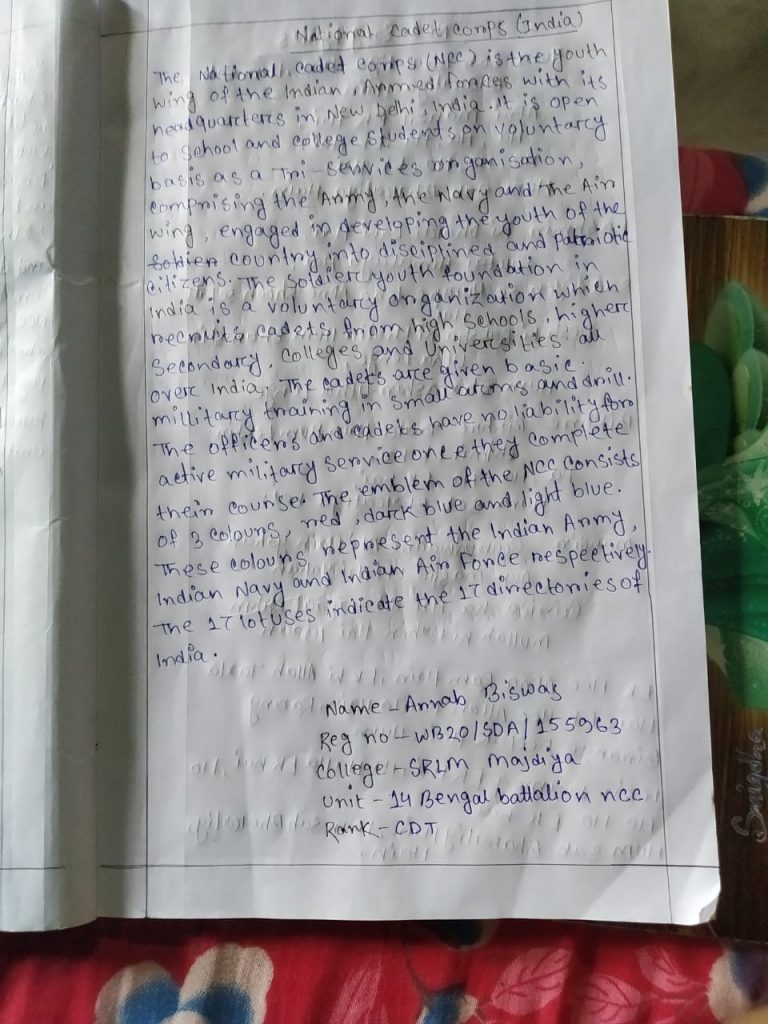 National Cadet corps (India)
The National Cadet Corps (NCC) is the youth
wing of the Indian Armed forces with its
headquarters in New Delhi, India. It is open
to school and college students on voluntary
basis as a Tri-services organisation,
comprising the Army, the Navy and the Air
wing, engaged in developing the youth of the
country into disciplined and patriotic
citizens. The soldier youth foundation in
India is a voluntary organization which
recruits cadets from high schools, higher
secondary, colleges and Universities all
over India. The cadets are given basic
millitary training in small arms and drill.
The officers and cadets have no liability for
active military service once they complete
their course. The emblem of the NCC consists
of 3 colours, red, dark blue and light blue.
These colours represent the Indian Army,
Indian Navy and Indian Air Force respectively.
The 17 lotuses indicate the 17 directories of
India.
Name - Arnab Biswas
Reg no - WB20/SDA/155963
College - SRLM majdiya
Unit - 14 Bengal battalion ncc
Rank - CDT